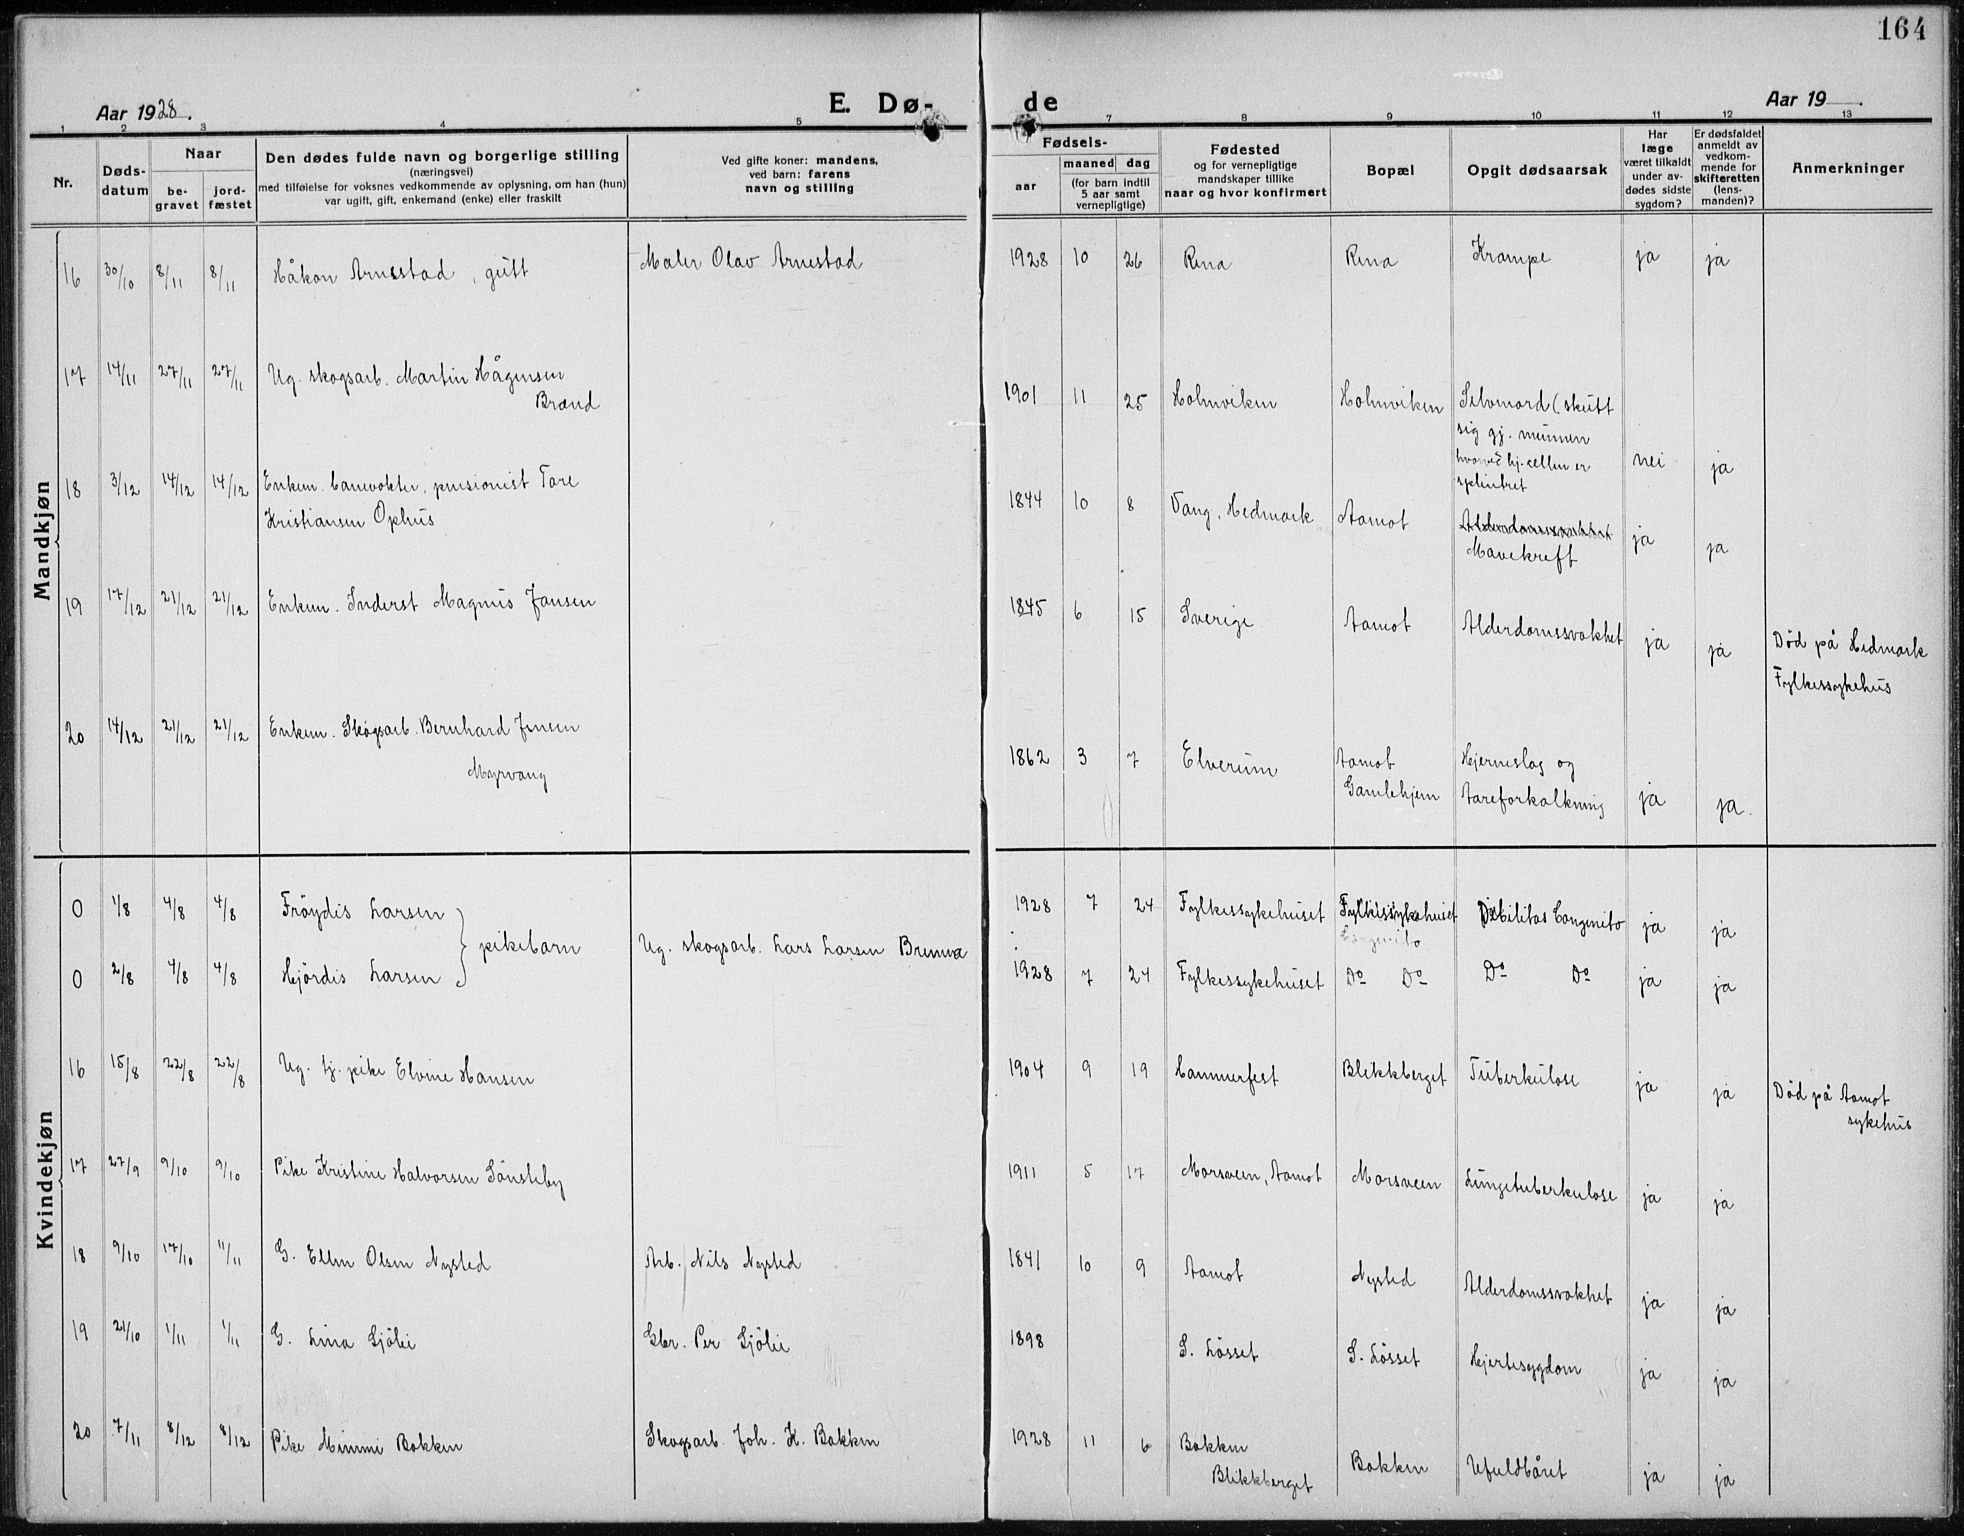 164
Aar 1928.
E. Dø-
de
Aar 19 .
1 2 3 4 5 7 8 9 10 11 12 13
Nr.
Døds-
datum
Naar
be-
gravet
jord-
fæstet
Den dødes fulde navn og borgerlige stilling
(næringsvei)
med tilføielse for voksnes vedkommende av oplysning, om han (hun)
var ugift, gift, enkemand (enke) eller fraskilt
Ved gifte koner: mandens,
ved barn: farens
navn og stilling
Fødsels-
aar
maaned dag
(for barn indtil
5 aar samt
vernepligtige)
Fødested
og for vernepligtige
mandskaper tillike
naar og hvor konfirmert
Bopæl
Opgit dødsaarsak
Har
læge
været tilkaldt
under av-
dødes sidste
sygdom?
Er dødsfaldet
anmeldt av
vedkom-
mende for
skifteretten
(lens-
manden)?
Anmerkninger
Mandkjøn
16 30/10 8/11 8/11 Håkon Arnestad, gutt Maler Olav Arnestad 1928 10 26 Rena Rena Krampe ja ja
17 14/11 27/11 27/11 Ug. skogsarb. Martin Hågensen
Brænd
1901 11 25 Holmviken Holmviken Selvmord (skutt
sig gj. munnen
hvorved hj.cellen er
splintret
nei ja
18 3/12 14/12 14/12 Enkem. banevokter, pensionist Tore
Kristiansen Ophus
1844 10 8 Vang, Hedmark Aamot Alderdomssvakhet
Mavekreft
ja ja
19 17/12 21/12 21/12 Enkem. Inderst Magnus Jansen 1845 6 15 Sverige Aamot Alderdomssvakhet ja ja Død på Hedmark
Fylkessykehus
20 14/12 21/12 21/12 Enkem. Skogsarb. Bernhard Jensen
Myrvang
1862 3 7 Elverum Aamot
Gamlehjem
Hjerneslag og
Aareforkalkning
ja ja.
Kvindekjøn
0 1/8 4/8 4/8 Fröydis Larsen 1928 7 24 Fylkessykehuset Fylkessykehuset Debilitas Congenito ja ja
Congenito
pikebarn Ug. skogsarb. Lars Larsen
0 2/8 4/8 4/8 Hjördis Larsen 1928 7 24 Fylkessykehuset Do Do Do Do ja ja
16 15/8 22/8 22/8 Ug. tj. pike Elvine Hansen 1904 9 19 Hammerfest Blikkberget Tuberkulose ja ja Död på Aamot
sykehus
17 27/9 9/10 9/10 Pike Kristine Halvorsen Sönsteby 1911 5 17 Morsveen, Aamot Morsveen Lungetuberkulose ja ja
18 9/10 17/10 11/11 G. Ellen Olsen Nysted Arb. Nils Nysted 1841 10 9 Aamot Nysted Alderdomssvakhet ja ja
19 21/10 1/11 1/11 G. Lina Sjölie Gbr. Per Sjölie 1898 S. Lösset S. Lösset Hjertesygdom ja ja
20 7/11 8/12 8/12 Pike Mimmi Bakken Skogsarb. Joh. H. Bakken 1928 11 6 Bakken
Blikkberget
Bakken Ufuldbåret ja ja